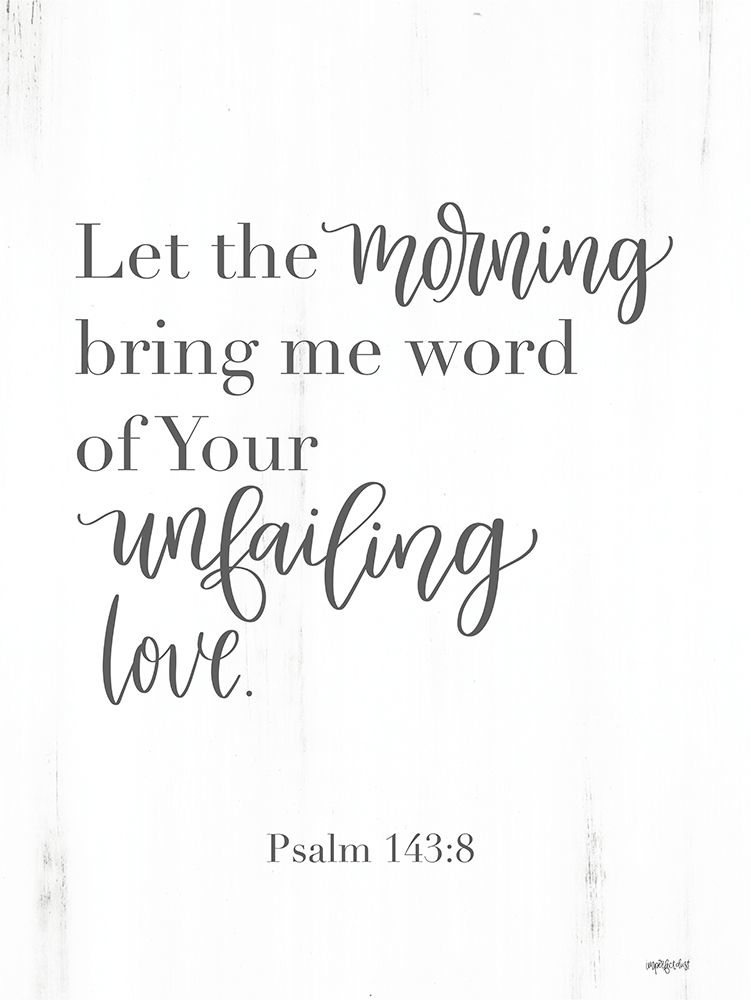 Let the morning
bring me word
of Your
unfailing
love.
Psalm 143:8
imperfect dust